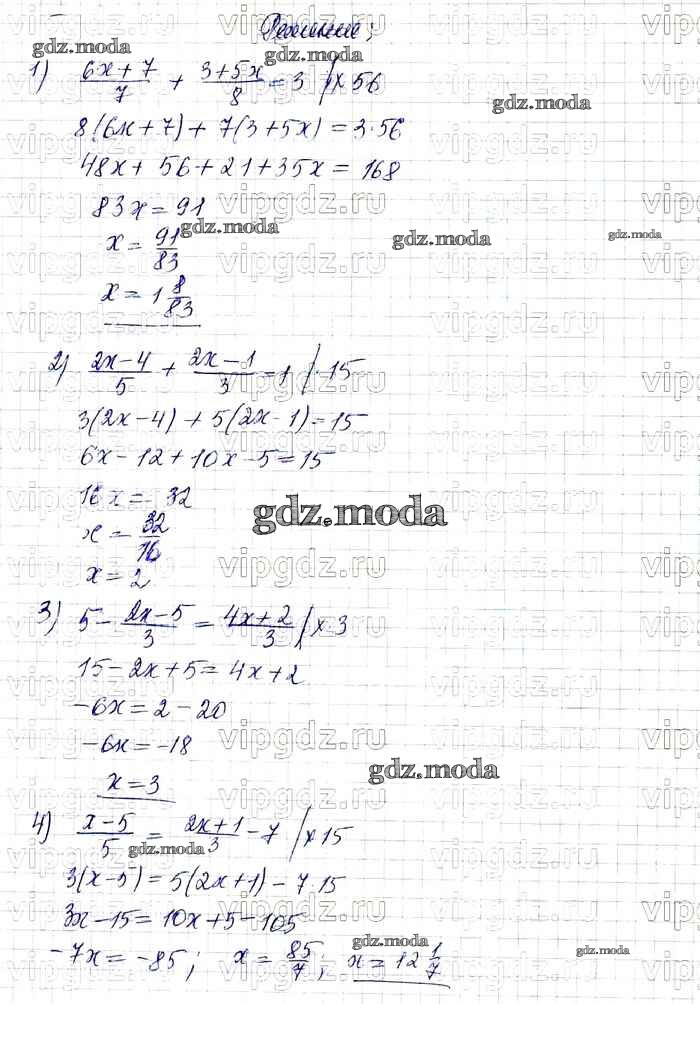 Решение;
1) (6x+7)/7 + (3+5x)/8 = 3 |×56
8(6x+7)+7(3+5x)=3·56
48x+56+21+35x=168
83x=91
x=91/83
x=1 8/83
2) (2x-4)/5 + (2x-1)/3 = 1 |·15
3(2x-4)+5(2x-1)=15
6x-12+10x-5=15
16x=32
x=32/16
x=2
3) 5-(2x-5)/3=(4x+2)/3 |×3
15-2x+5=4x+2
-6x=2-20
-6x=-18
x=3
4) (x-5)/5=(2x+1)/3-7 |×15
3(x-5)=5(2x+1)-7·15
3x-15=10x+5-105
-7x=-85; x=85/7; x=12 1/7
gdz.moda
vipgdz.ru